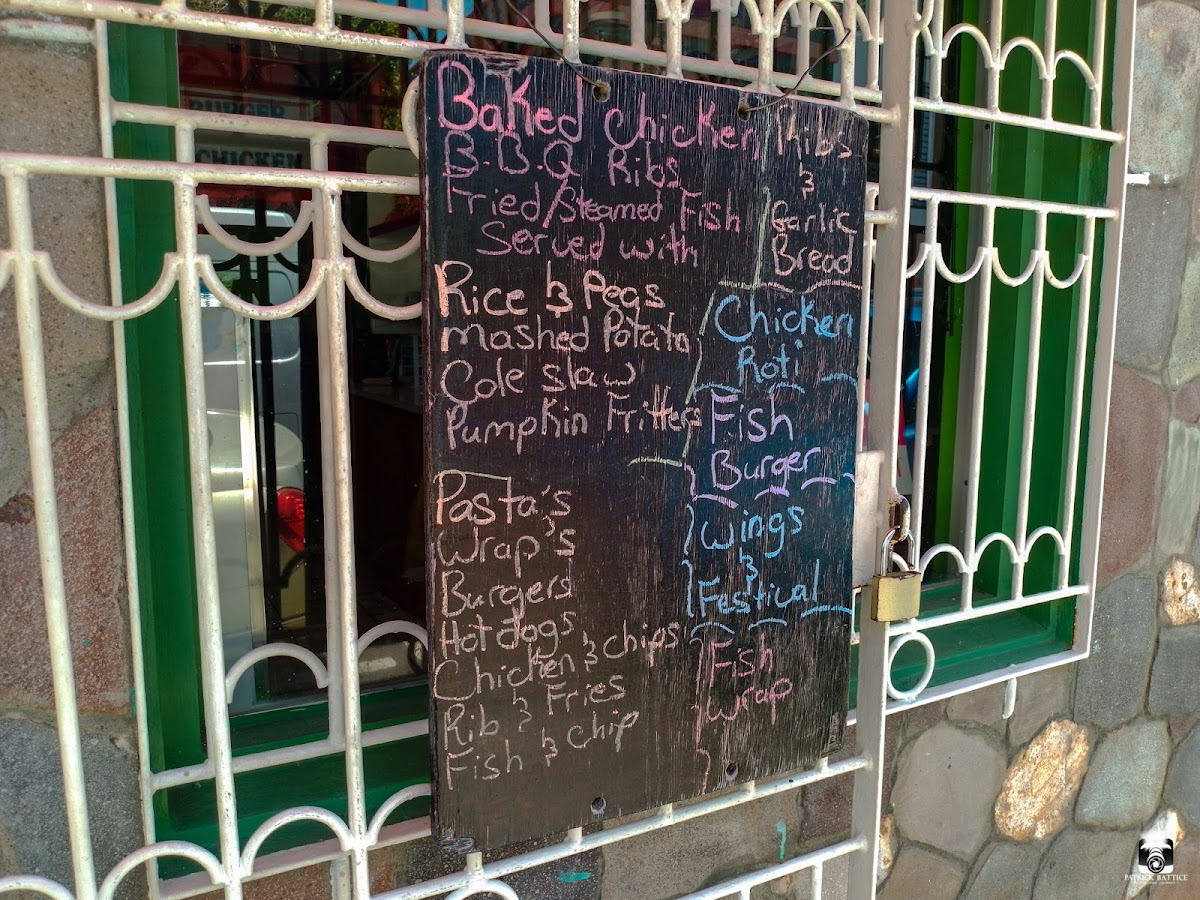 Baked Chicken,
B.B.Q Ribs
Fried/Steamed Fish
Served with
Rice & Peas
Mashed Potato
Cole slaw
Pumpkin Fritters
Pasta's
Wrap's
Burgers
Hot dogs
Chicken & chips
Rib & Fries
Fish & chip
Ribs
&
Garlic
Bread
Chicken
Roti
Fish
Burger
Wings
&
Festival
Fish
Wrap
BURGER
CHICKEN
PATRICK BATTICE